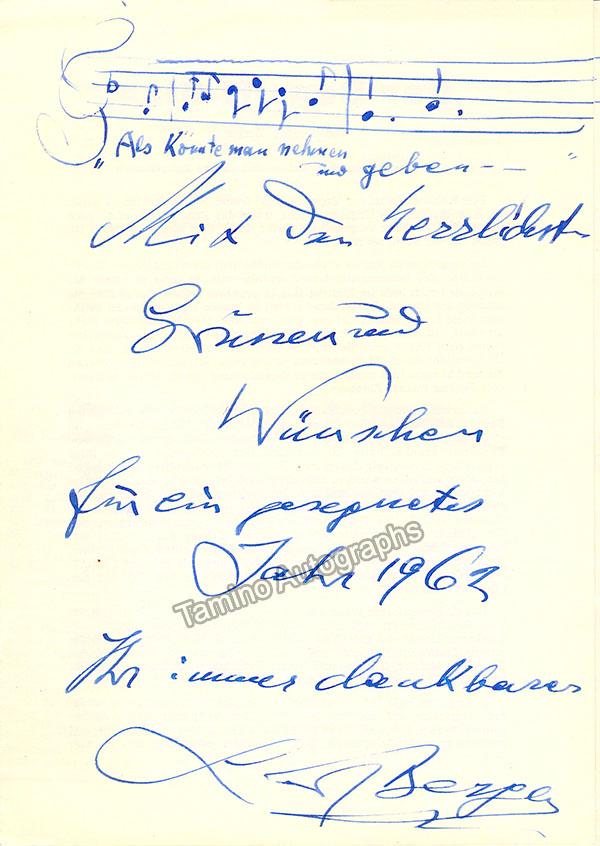 "Als Könnte man nehmen
und geben - - "
Mit den herzlichsten
Grüssen und
Wünschen
für ein gesegnetes
Jahr 1962
Tamino Autographs
Ihr immer dankbarer
Berger